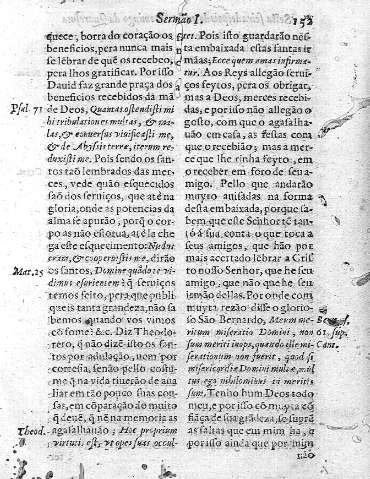 Sermão I.
152
quece, borra do coração os
beneficios, pera nunca mais
se lẽbrar de quẽ os recebeo,
pera lhos gratificar. Por isso
David faz grande praça dos
beneficios recebidos da mã
Psal. 71
de Deos, Quantas ostendisti mi
hi tribulationes multas, & ma-
las, & conversus vivificasti me,
& de Abyssis terræ, iterum re-
duxisti me. Pois sendo os san-
tos taõ lembrados das mer-
ces, vede quão esquecidos
saõ dos serviços, que atè na
gloria, onde as potencias da
alma se apurão, porq̃ o cor-
po as não estorva, atè lè che
ga este esquecimento: Nudus
eram, & cooperuisti me, dirão
Mat. 25
os santos, Domine quãdo te vi-
dimus esurientem? q̃ serviços
temos feito, pera que publi
queis tanta grandeza, não sa
bemos quando vos vimos
cõ fome? &c. Diz Theodo-
reto, q̃ não dizẽ isto os san-
tos por adulação, nem por
cortesia, senão pello costu-
me q̃ na vida tiverão de ava
liar em tão pouco suas cou-
sas, em cõparação ao muito
q̃ devẽ, q̃ nẽ na memoria as
Theod.
agasalhavão; Hoc proprium
virtuti est, ut opes suas occul-
tes. Pois isto guardarão nes-
ta embaixada estas santas ir
mãas; Ecce quem amas infirma-
tur. Aos Reys allegão servi-
ços feytos, pera os obrigar,
mas a Deos, merces recebi-
das, e por isso não allegão o
gosto, com que o agasalha-
uão em casa, as festas com
que o recebião; mas a mer-
ce que lhe rinha feyto, em
o receber em foro de seu a-
migo. Pello que andarão
muyto avisadas na forma
desta embaixada, porque sa-
bem que este Senhor tẽ tan-
tô à sua conta o que toca a
seus amigos, que hão por
mais acertado lembrar a Cris
to nosso Senhor, que he seu
amigo, que não que he seu
irmão dellas. Por onde com
muyta rezão disse o glorio-
so São Bernardo, Meum me-
ritum miseratio Domini, non
Bern. s.
61. sup.
Cant.
sum meriti inops, quandiu ille mi-
serationum non fuerit, quod si
misericordiæ Domini multæ, mul
tus ego nihilominus in meritis
sum. Tenho hum Deos todo
meu, e por isso cõ muyta cõ
fiança de sua grãdeza, se supra
as faltas que em mim ha, e
por isso ainda que por mim
não